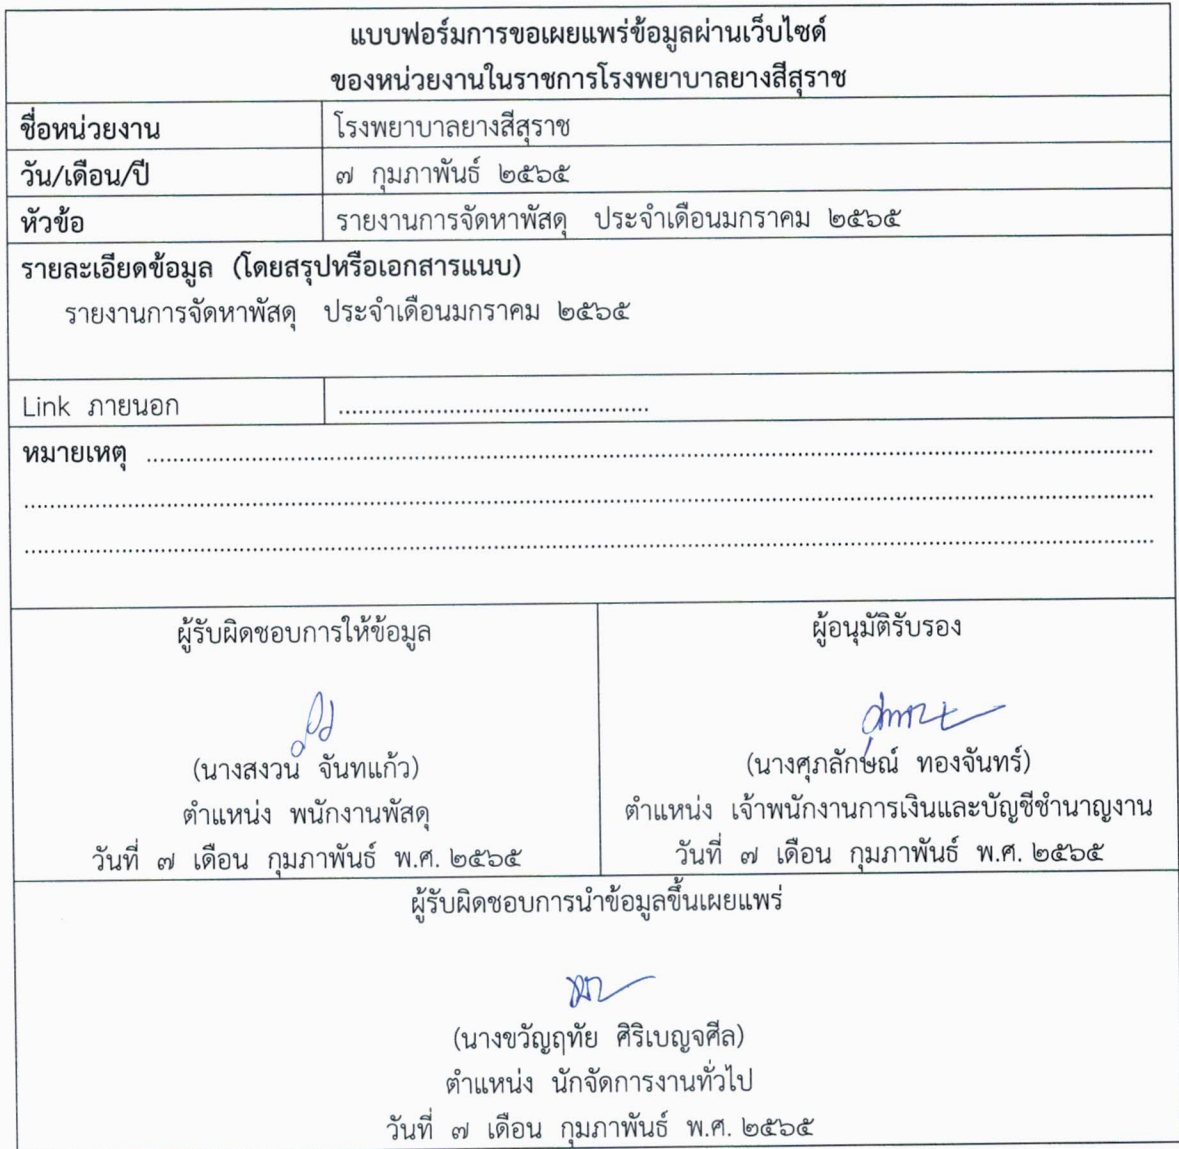 แบบฟอร์มการขอเผยแพร่ข้อมูลผ่านเว็บไซด์
ของหน่วยงานในราชการโรงพยาบาลยางสีสุราช
ชื่อหน่วยงาน โรงพยาบาลยางสีสุราช
วัน/เดือน/ปี ๗ กุมภาพันธ์ ๒๕๖๕
หัวข้อ รายงานการจัดหาพัสดุ ประจำเดือนมกราคม ๒๕๖๕
รายละเอียดข้อมูล (โดยสรุปหรือเอกสารแนบ)
รายงานการจัดหาพัสดุ ประจำเดือนมกราคม ๒๕๖๕
Link ภายนอก ................................................
หมายเหตุ ................................................
................................................
................................................
ผู้รับผิดชอบการให้ข้อมูล
(นางสงวน จันทแก้ว)
ตำแหน่ง พนักงานพัสดุ
วันที่ ๗ เดือน กุมภาพันธ์ พ.ศ. ๒๕๖๕
ผู้อนุมัติรับรอง
(นางศุภลักษณ์ ทองจันทร์)
ตำแหน่ง เจ้าพนักงานการเงินและบัญชีชำนาญงาน
วันที่ ๗ เดือน กุมภาพันธ์ พ.ศ. ๒๕๖๕
ผู้รับผิดชอบการนำข้อมูลขึ้นเผยแพร่
(นางขวัญฤทัย ศิริเบญจศีล)
ตำแหน่ง นักจัดการงานทั่วไป
วันที่ ๗ เดือน กุมภาพันธ์ พ.ศ. ๒๕๖๕